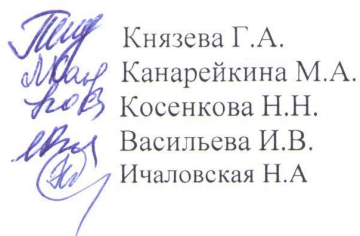 Князева Г.А.
Канарейкина М.А.
Косенкова Н.Н.
Васильева И.В.
Ичаловская Н.А